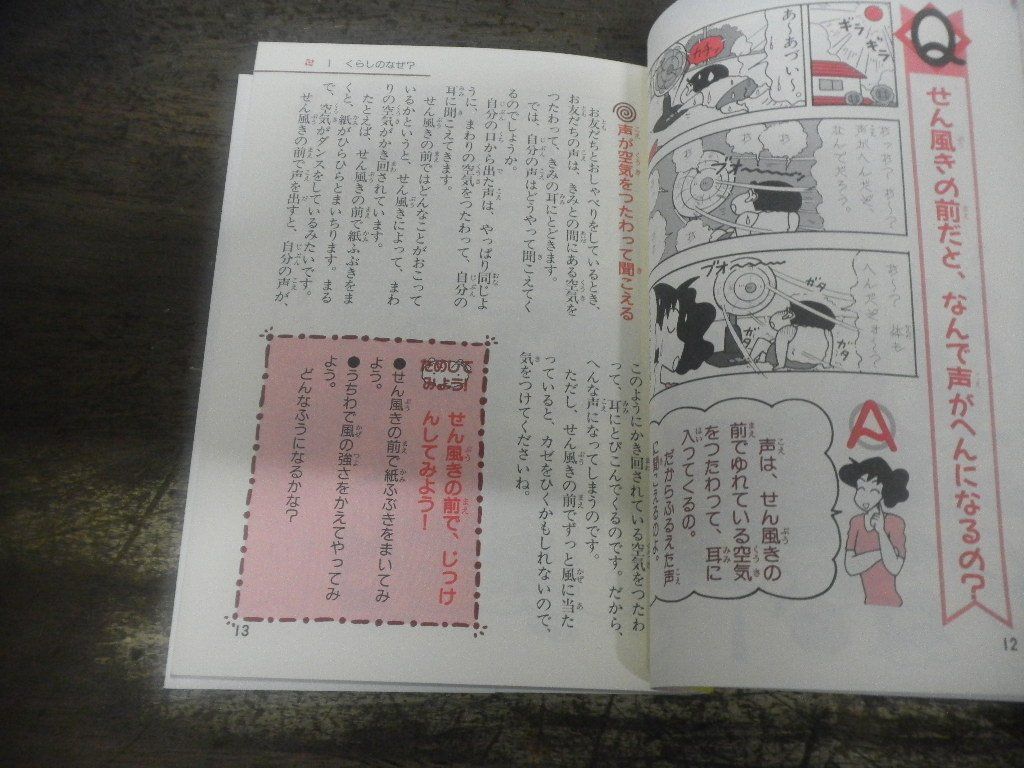 Q
せん風きの前だと、なんで声がへんになるの?
ギラギラ
あ〜あつい〜。
カチッ
声が
なんでだろう。
ブオー
ブオ〜〜〜
ガタガタ
ガタガタ
A
声は、せん風きの
前でゆれている空気
をつたわって、耳に
入ってくるの。
だからふるえた声
に聞こえるのよ。
12
1 くらしのなぜ?
声が空気をつたわって聞こえる
お友だちとおしゃべりをしているとき、
お友だちの声は、きみとの間にある空気を
つたわって、きみの耳にとどきます。
では、自分の声はどうやって聞こえてく
るのでしょうか。
自分の口から出た声は、やっぱり同じよ
うに、まわりの空気をつたわって、自分の
耳に聞こえてきます。
せん風きの前ではどんなことがおこって
いるかというと、せん風きによって、まわ
りの空気がかき回されています。
たとえば、せん風きの前で紙ふぶきをま
くと、紙がひらひらとまいちります。まる
で、空気がダンスをしているみたいです。
せん風きの前で声を出すと、自分の声が、
このようにかき回されている空気をつたわ
って、耳にとびこんでくるのです。だから、
へんな声になってしまうのです。
ただし、せん風きの前でずっと風に当た
っていると、カゼをひくかもしれないので、
気をつけてくださいね。
ためしてみよう!
せん風きの前で、じっけ
んしてみよう!
●せん風きの前で紙ふぶきをまいてみ
よう。
●うちわで風の強さをかえてやってみ
よう。
どんなふうになるかな?
13